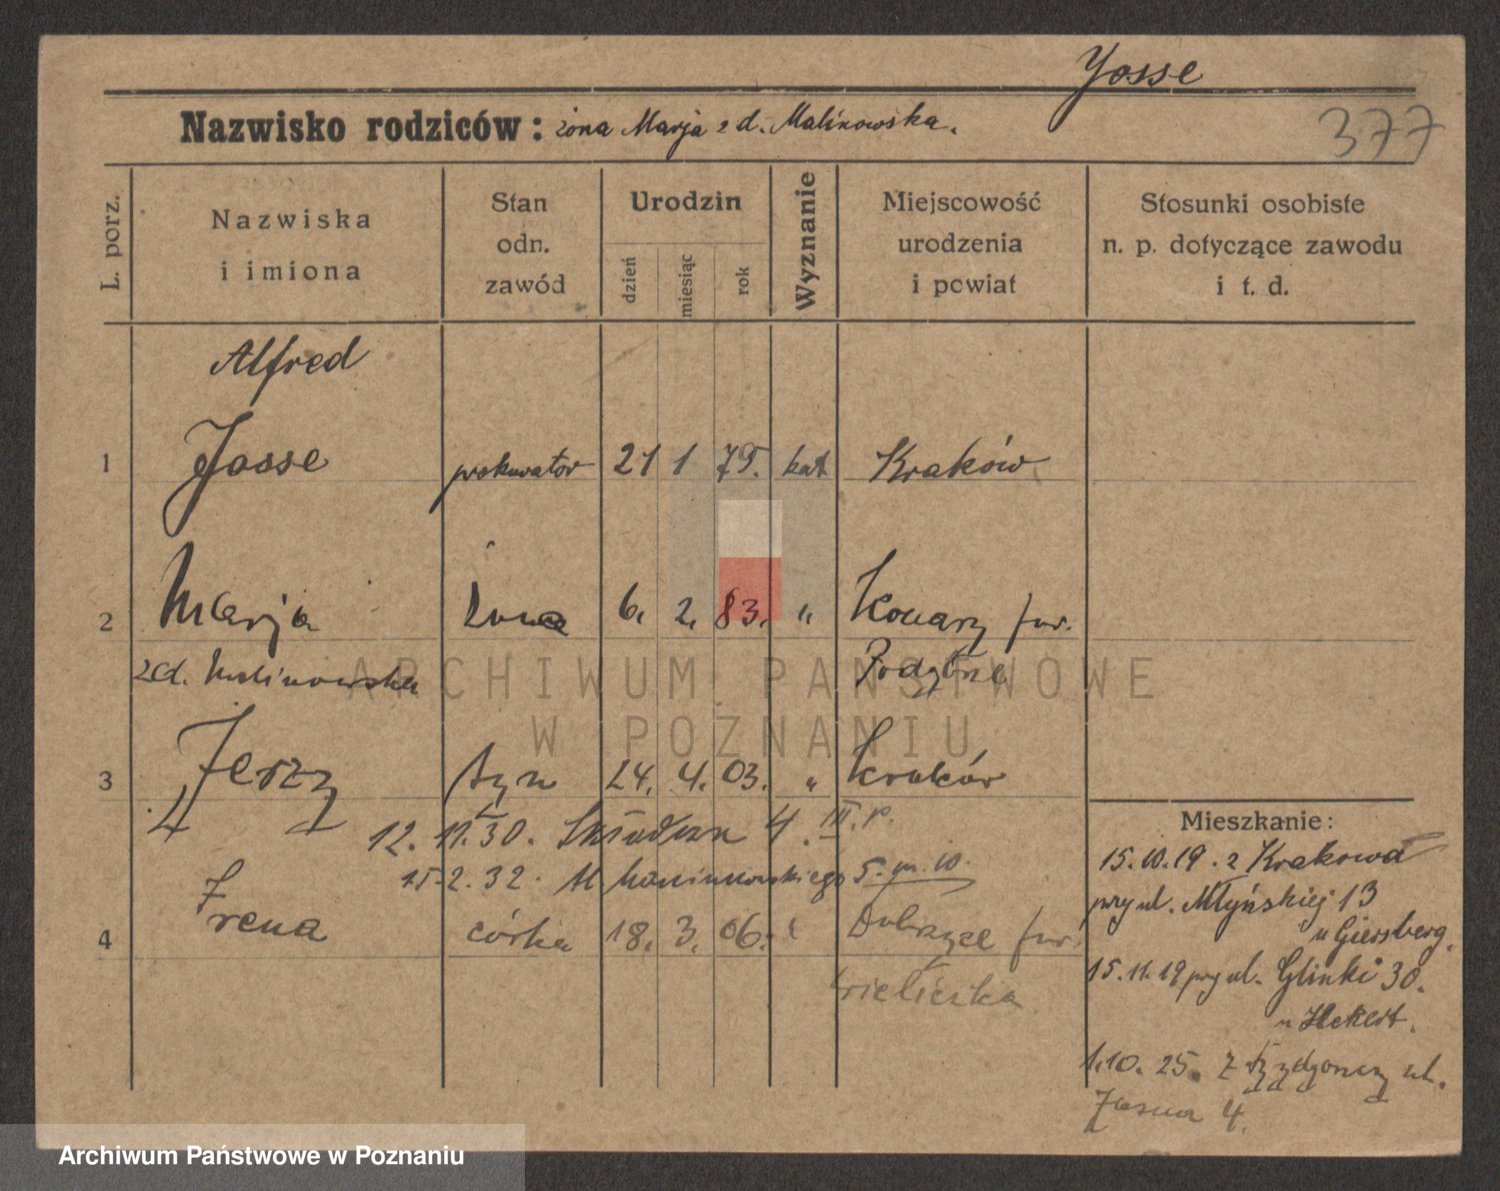 Yosse
Nazwisko rodziców: żona Marja z d. Malinowska.
377
L. porz.
Nazwiska
i imiona
Stan
odn.
zawód
Urodzin
dzień
miesiąc
rok
Wyznanie
Miejscowość
urodzenia
i powiat
Stosunki osobiste
n. p. dotyczące zawodu
i t. d.
Alfred
1 Josse prokurator 21 1 79. kat. Kraków
2 Marja żona 6. 2. 83. " pow.
zd. Malinowska
3 Jerzy syn 24. 4. 03. " Kraków
12. 11. 30. 4. III. p.
15. 2. 32.
4 Irena córka 18. 3. 06. "
Wieliczka
Mieszkanie:
15.10.19. z Krakowa
przy ul. Młyńskiej 13
u Giersberg.
15.11.19 przy ul. Glinki 30.
u
1.10.25. z Bydgoszczy ul.
Jasna 4.
ARCHIWUM PAŃSTWOWE
W POZNANIU
Archiwum Państwowe w Poznaniu